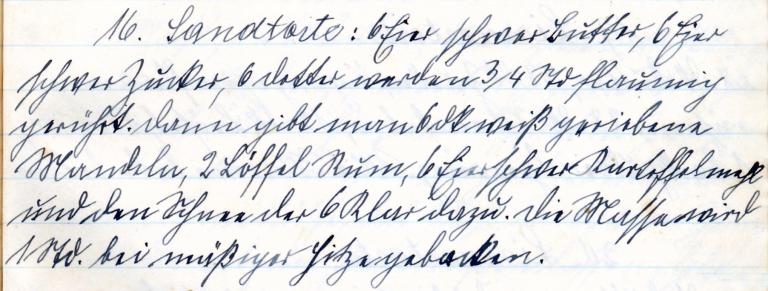 16. Sandtorte: 6 Eier schwer Butter, 6 Eier
schwer Zucker, 6 dotter werden 3/4 Std flaumig
gerührt. dann gibt man 6 dk weiß geriebene
Mandeln, 2 Löffel Rum, 6 Eier schwer Kartoffelmehl
und den Schnee der 6 Klar dazu. die Masse wird
1 Std. bei mäßiger Hitze gebacken.